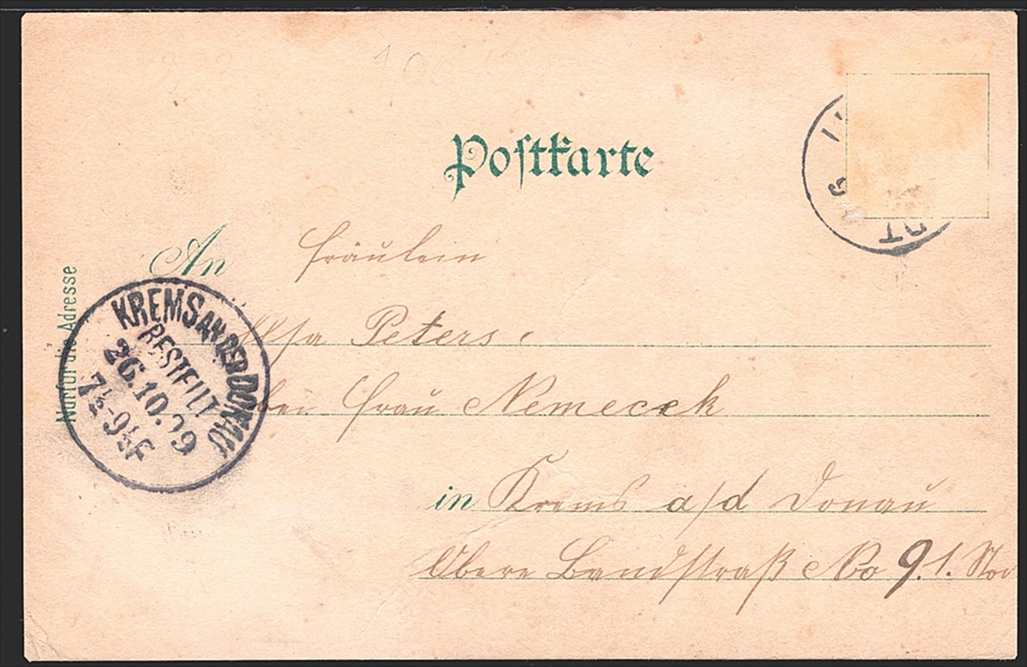 Postkarte
An Fräulein
Peters
Frau Nemecek
in Krems a/d Donau
Obere Landstraß No 9. 1. Sto
Nur für die Adresse
KREMS AN DER DONAU
BESTELLT
26.10.99
7½-9½F